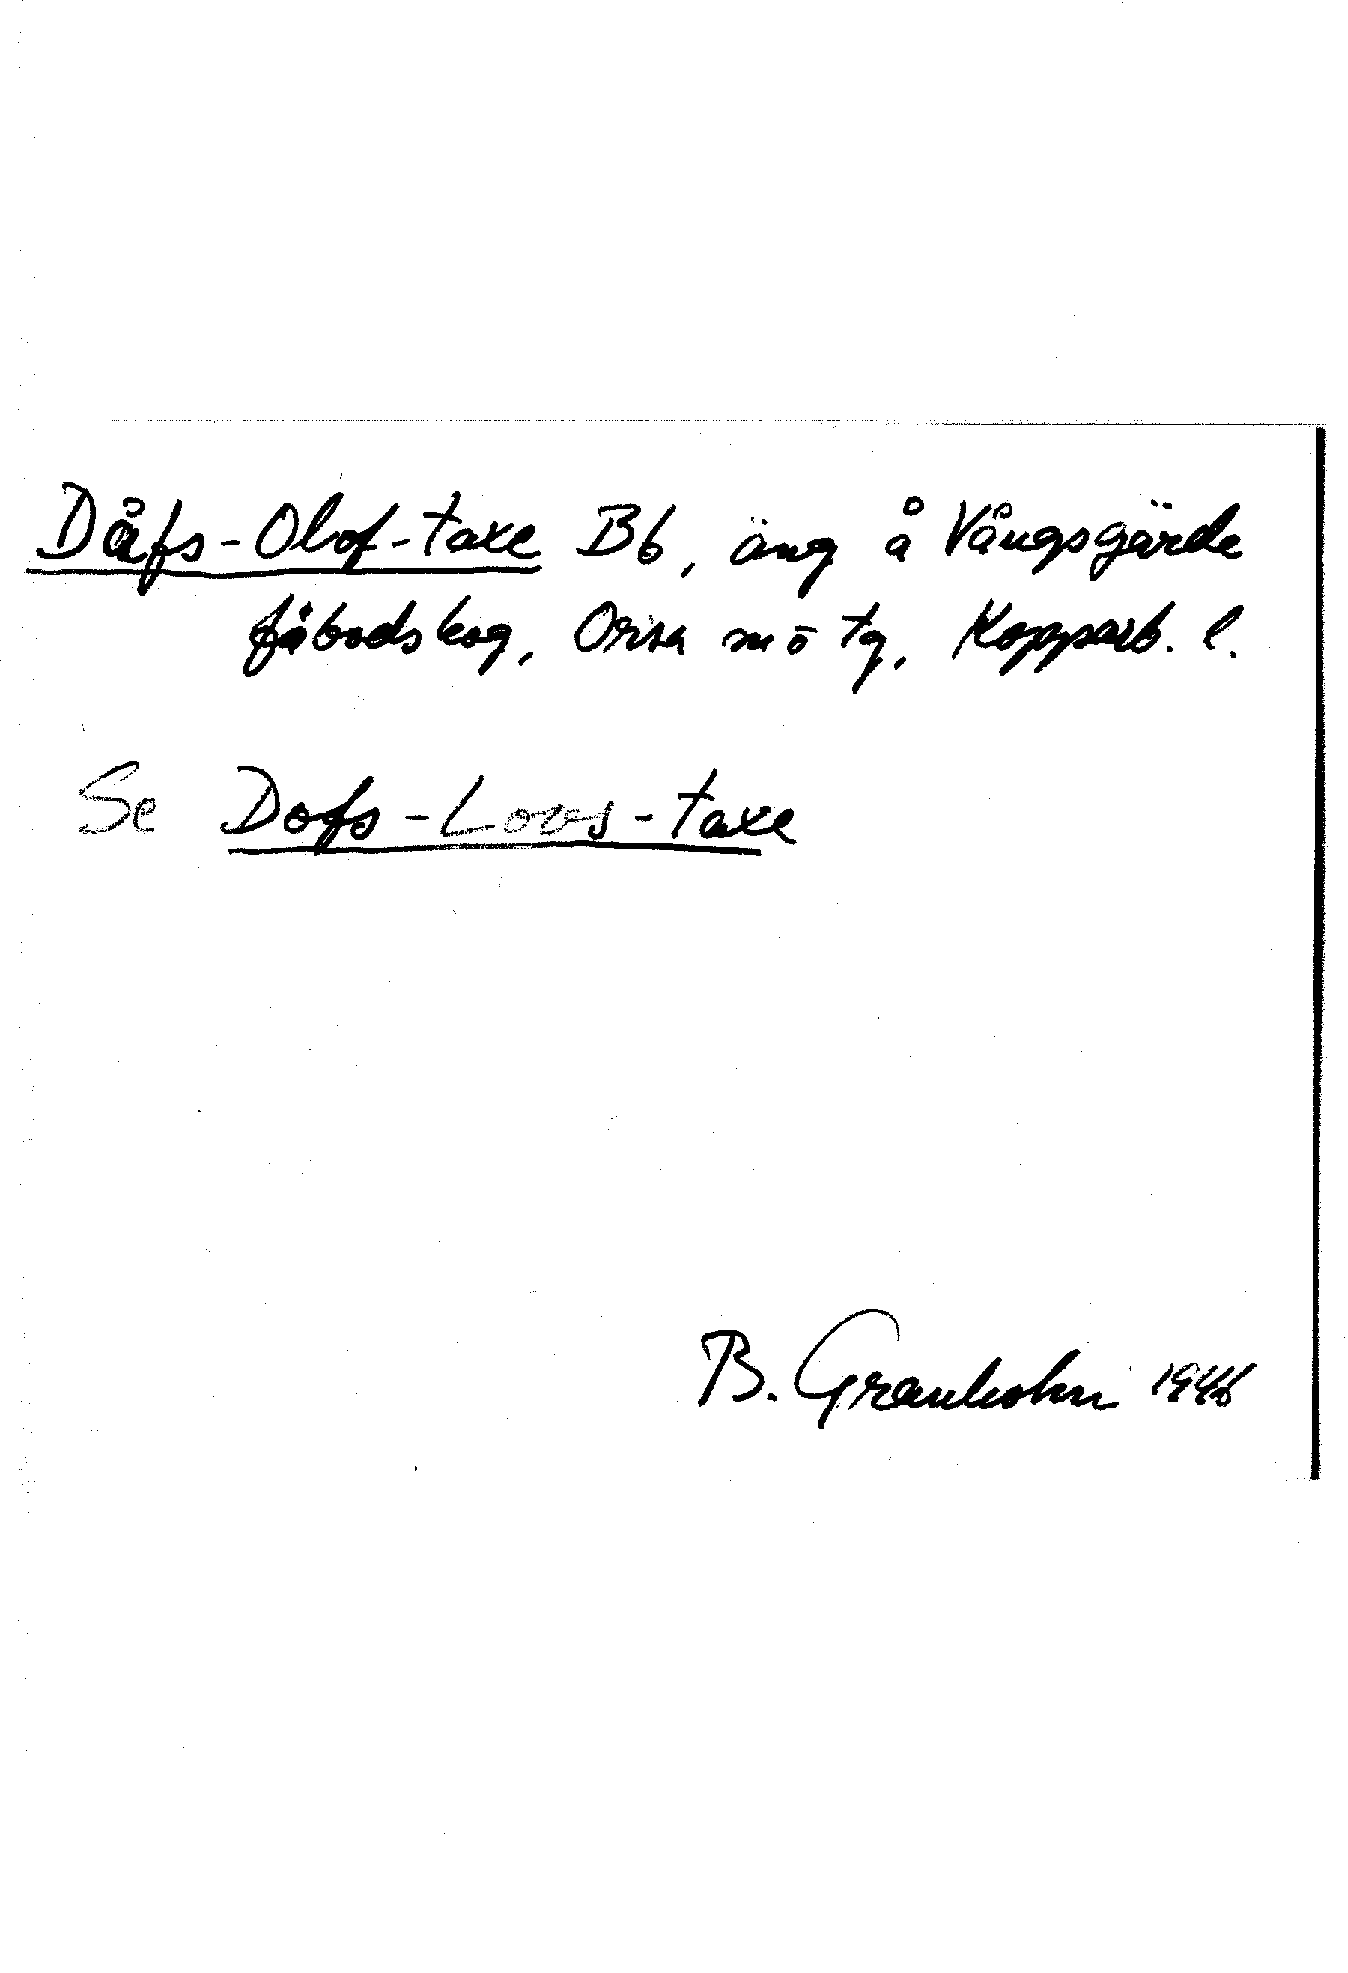 Dåfs-Olof-taxe Bb, äng å Vångsgärde
fäbodskog, Orsa sn ö tg, Kopparb. l.
Se Dofs-Loos-taxe
B. Granholm 1946